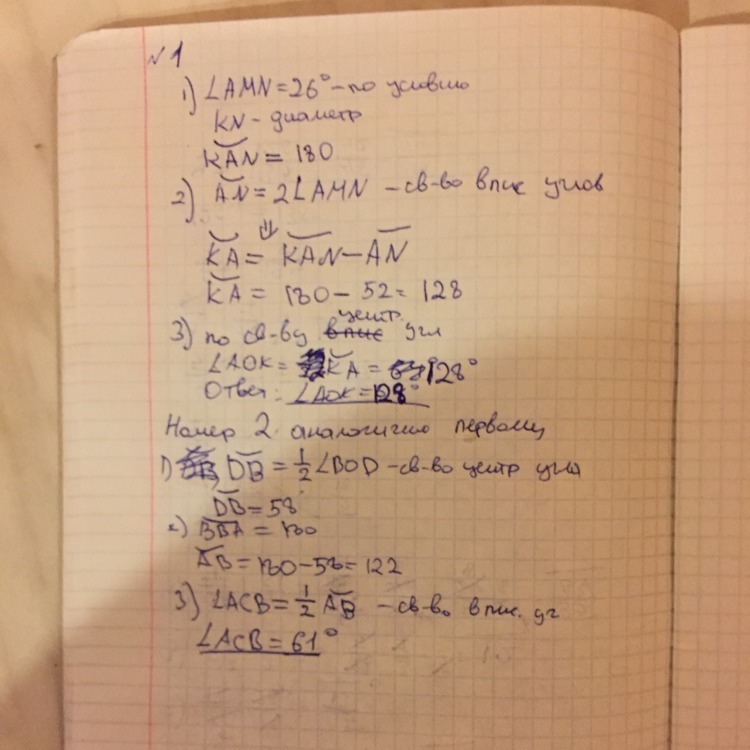 №1
1) ∠AMN = 26° – по условию
KN – диаметр
KAN = 180
2) AN = 2∠AMN – св-во впис углов
⇓
KA = KAN – AN
KA = 180 – 52 = 128
центр.
3) по св-ву впис угл
∠AOK = KA = 128°
Ответ: ∠AOK = 128°
Номер 2 аналогично первому
1) DB = 1/2 ∠BOD – св-во центр угла
DB = 58
2) = 180
AB = 180 – 58 = 122
3) ∠ACB = 1/2 AB – св-во впис. уг
∠ACB = 61°